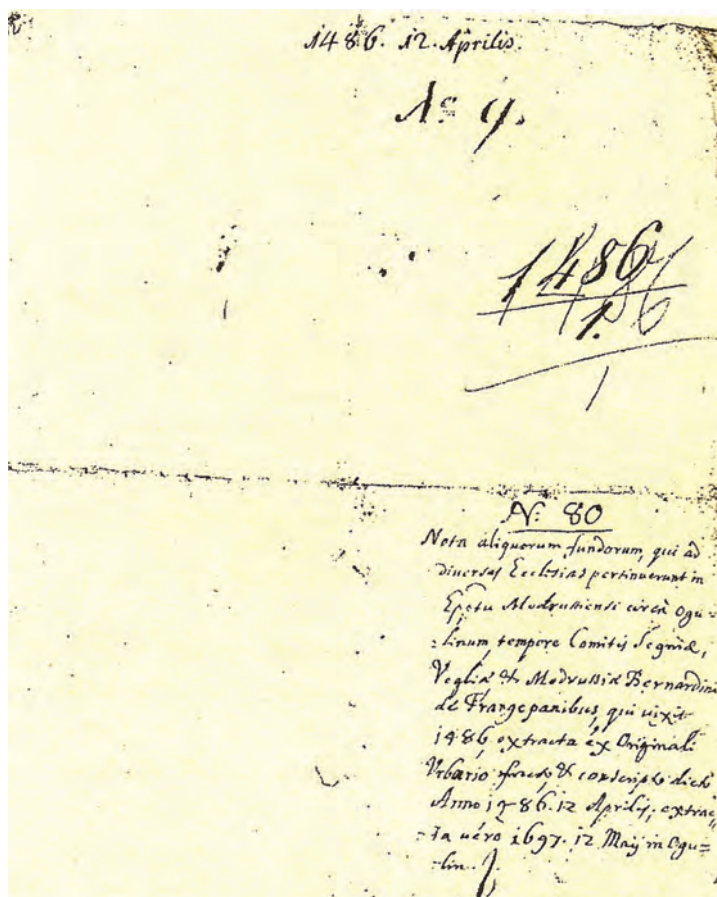 1486. 12. Aprilis.
No 9.
1486
1.
1
N: 80
Nota aliquorum fundorum, qui ad
diversas Ecclesias pertinuerunt in
Epatu Modrussiensi circa Ogu=
=linum, tempore Comitis Segniæ,
Vegliæ & Modrussiæ Bernardini
de Frangepanibus, qui vixit
1486, extracta ex Originali
Urbario facto & conscripto dicto
Anno 1486. 12 Aprilis, extrac,
=ta uero 1697. 12 Maij in Ogu=
=lin.